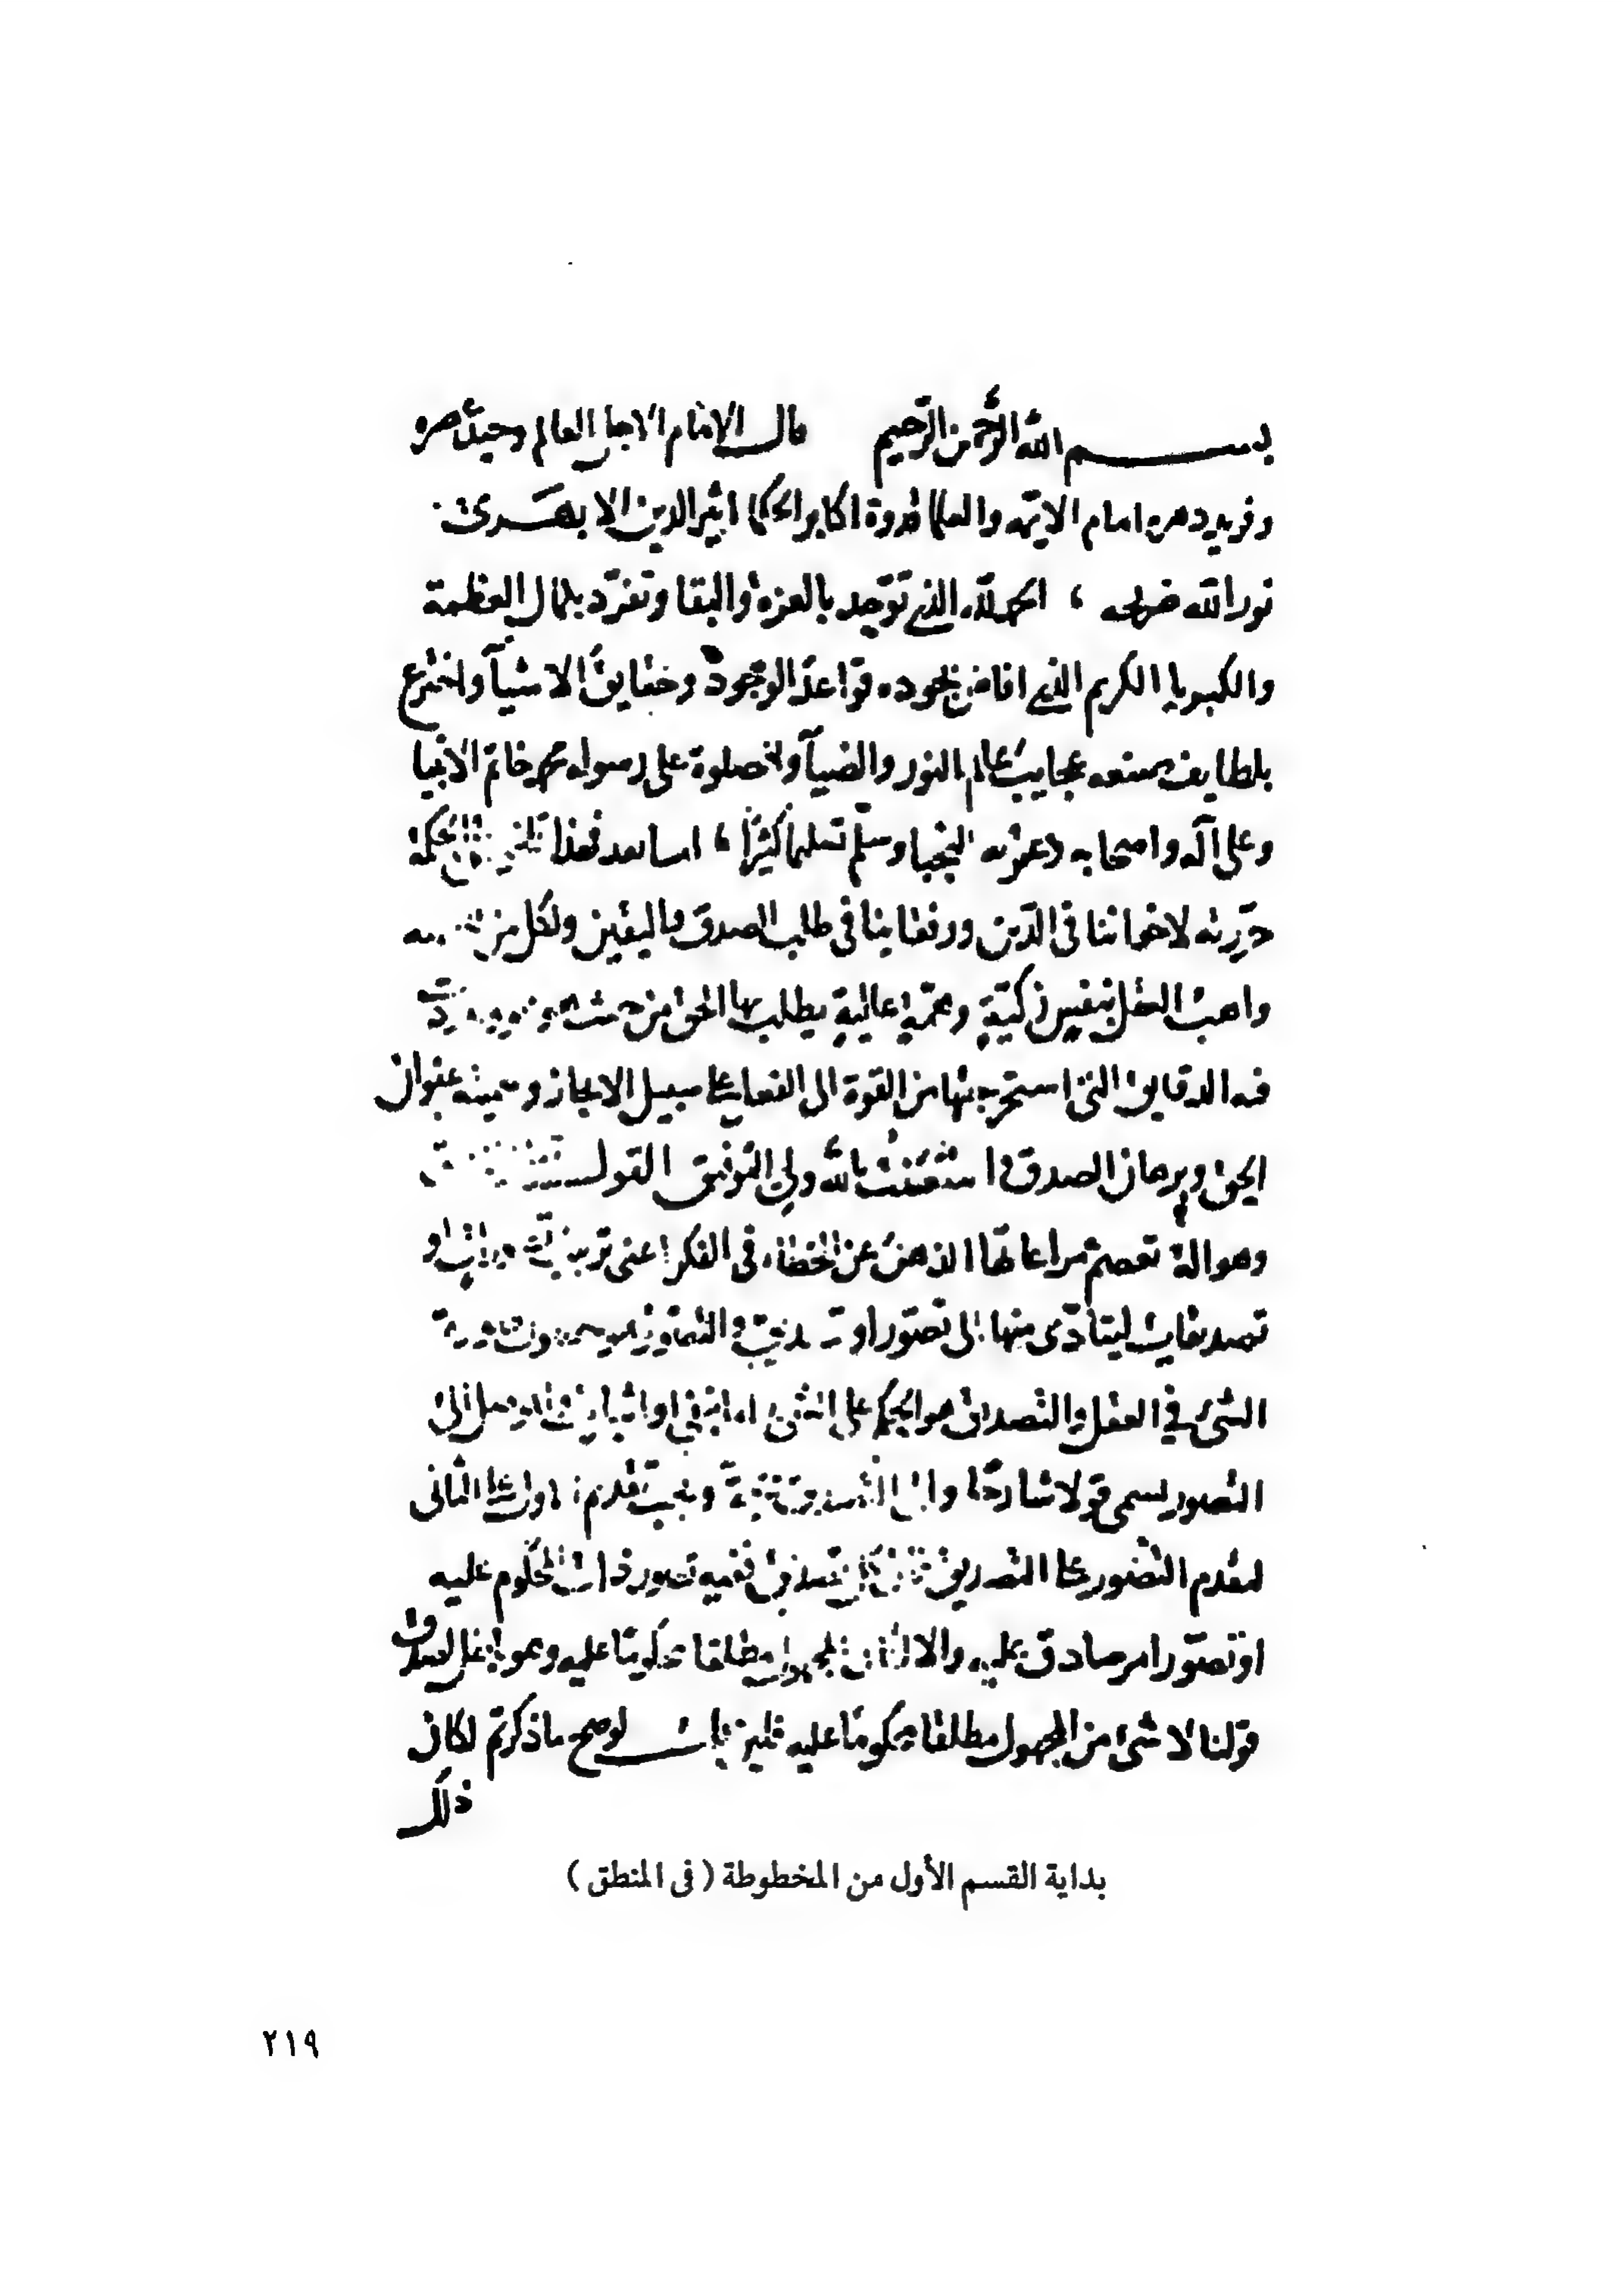 بسم الله الرحمن الرحيم قال الامام الاجل العالم وحيد عصره
وفريد دهره امام الايمه والعلما قدوة اكابر الحكما اثير الدين الابهرى
نور الله ضريحه ، الحمد لله الذي توحد بالعزة والبقا وتفرد بكمال العظمة
والكبريا الكريم الذي افاض بجوده قواعد الوجود وحقايق الاشيآ واخترع
بلطايف صنعه عجايب عالم النور والضيآ والصلوة على رسوله محمد خاتم الانبيا
وعلى آله واصحابه وعترته النجبا وسلّم تسليما كثيرًا ، اما بعد فهذا الحكمة
حرّرته لاخواننا فى الدّين ورفقاينا فى طلب الصدق واليقين ولكل من
واهب العقل بنفسٍ زكيّةٍ وهمّةٍ عاليةٍ يطلب بها الحق من حيث هو
فيه الدقايق التى استخرجتها من القوة الى الفعل على سبيل الايجاز وسميته عنوان
الحق وبرهان الصدق واستعنت بالله ولي التوفيق القول
وهو الة تعصم مراعاتها الذهن عن الخطاء فى الفكر اعنى ترتيب او
تصديقات ليتادّى منها الى تصوّر او تصديق والتصور هو حصول صورة
الشئ في العقل والتصديق هو الحكم على الشئ اما بنفي او اثبات الى
التصور يسمى قولا شارحًا والى التصديق حجة ويجب تقديم الاول على الثانى
لتقدم التصور على التصديق كل تصديق ففيه تصور ذات المحكوم عليه
او تصوّر امر صادق عليه والا لكان المجهول مطلقا محكومًا عليه وهو
قولنا لا شئ من المجهول مطلقا محكومًا عليه لو صح ما ذكرتم لكان
ذلك
بداية القسم الأول من المخطوطة ( فى المنطق )
٢١٩